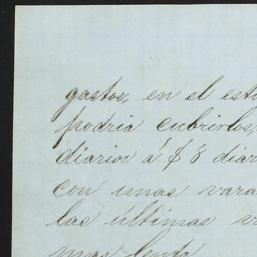 gastos, en el est
podria cubrirlos,
diarios á $ 8 diar
con unas vara
las últimas v
mas lenta